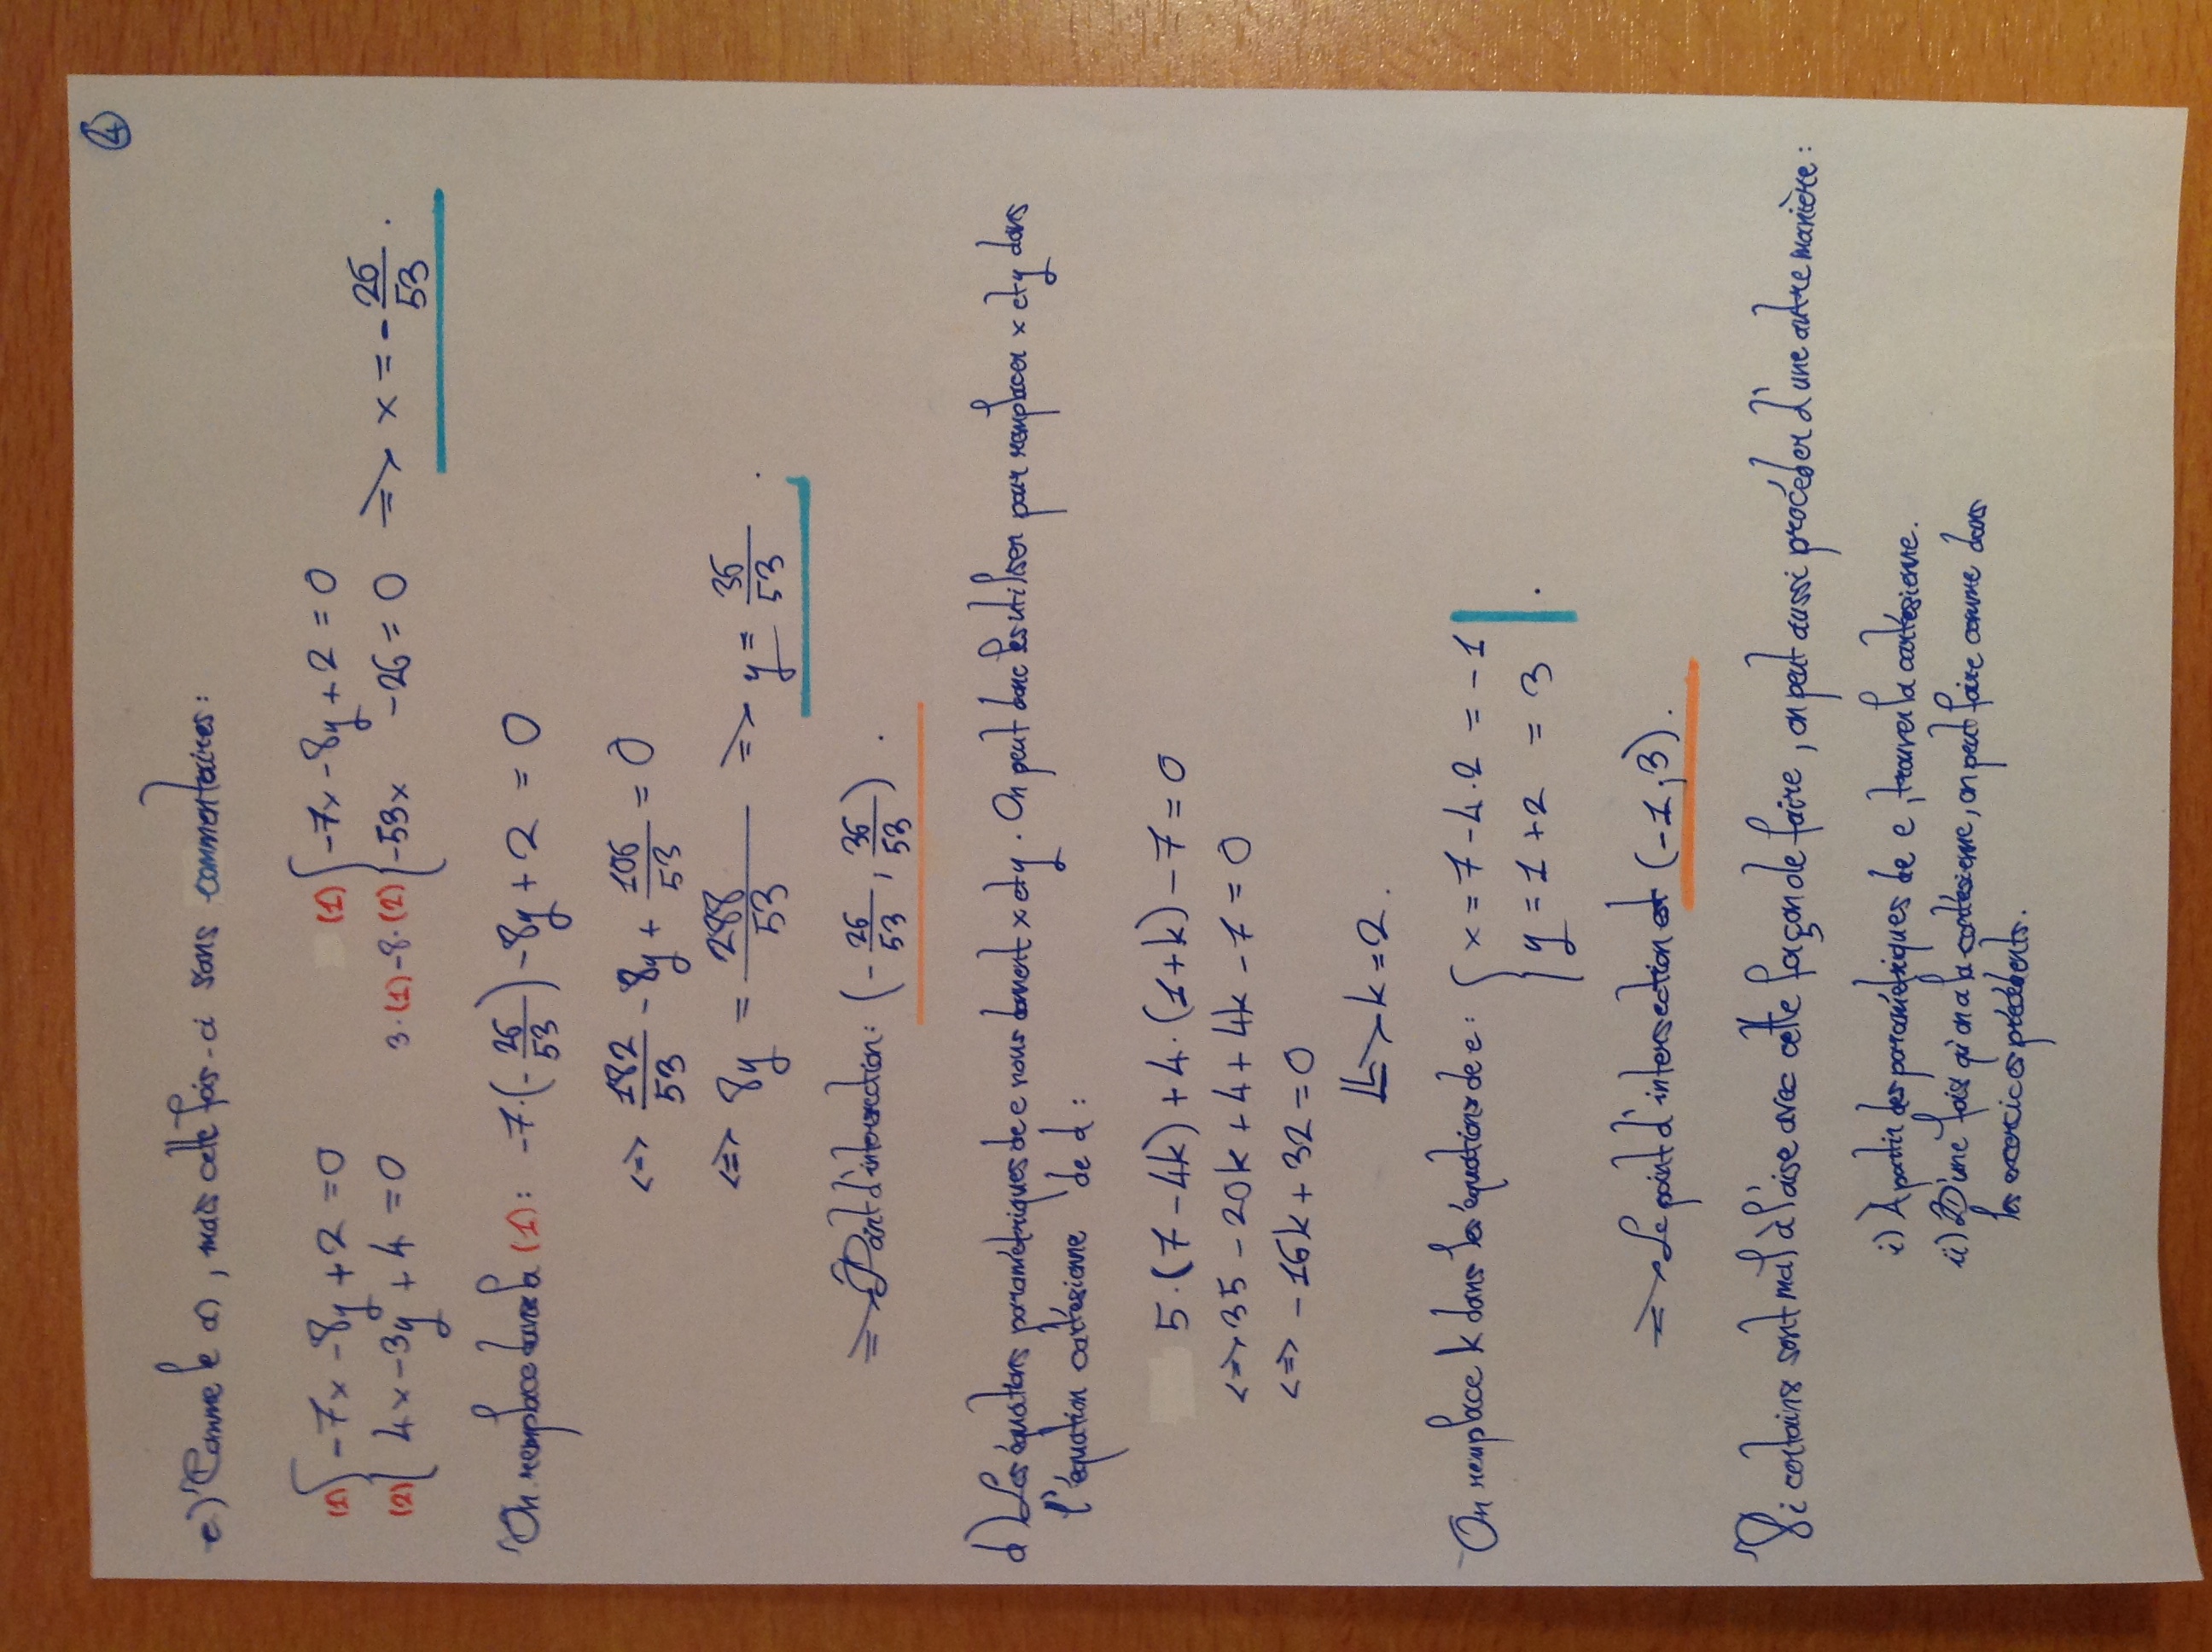 4
c) Comme le a), mais cette fois-ci sans commentaires :
(1) { -7x - 8y + 2 = 0 (1) { -7x - 8y + 2 = 0
(2) { 4x - 3y + 4 = 0 3·(1)-8·(2) { -53x - 26 = 0 => x = -26/53 .
On remplace dans la (1) : -7·(-26/53) - 8y + 2 = 0
<=> 182/53 - 8y + 106/53 = 0
<=> 8y = 288/53 => y = 36/53 .
=> Point d'intersection : (-26/53 , 36/53) .
d) Les équations paramétriques de e nous donnent x et y. On peut donc les utiliser pour remplacer x et y dans
l'équation cartésienne de d :
5·(7 - 4k) + 4·(1+k) - 7 = 0
<=> 35 - 20k + 4 + 4k - 7 = 0
<=> -16k + 32 = 0
=> k = 2.
On remplace k dans les équations de e : { x = 7 - 4·2 = -1
{ y = 1 + 2 = 3 .
=> Le point d'intersection est (-1 ; 3).
Si certains sont mal à l'aise avec cette façon de faire, on peut aussi procéder d'une autre manière :
i) À partir des paramétriques de e, trouver la cartésienne.
ii) D'une fois qu'on a la cartésienne, on peut faire comme dans
les exercices précédents.